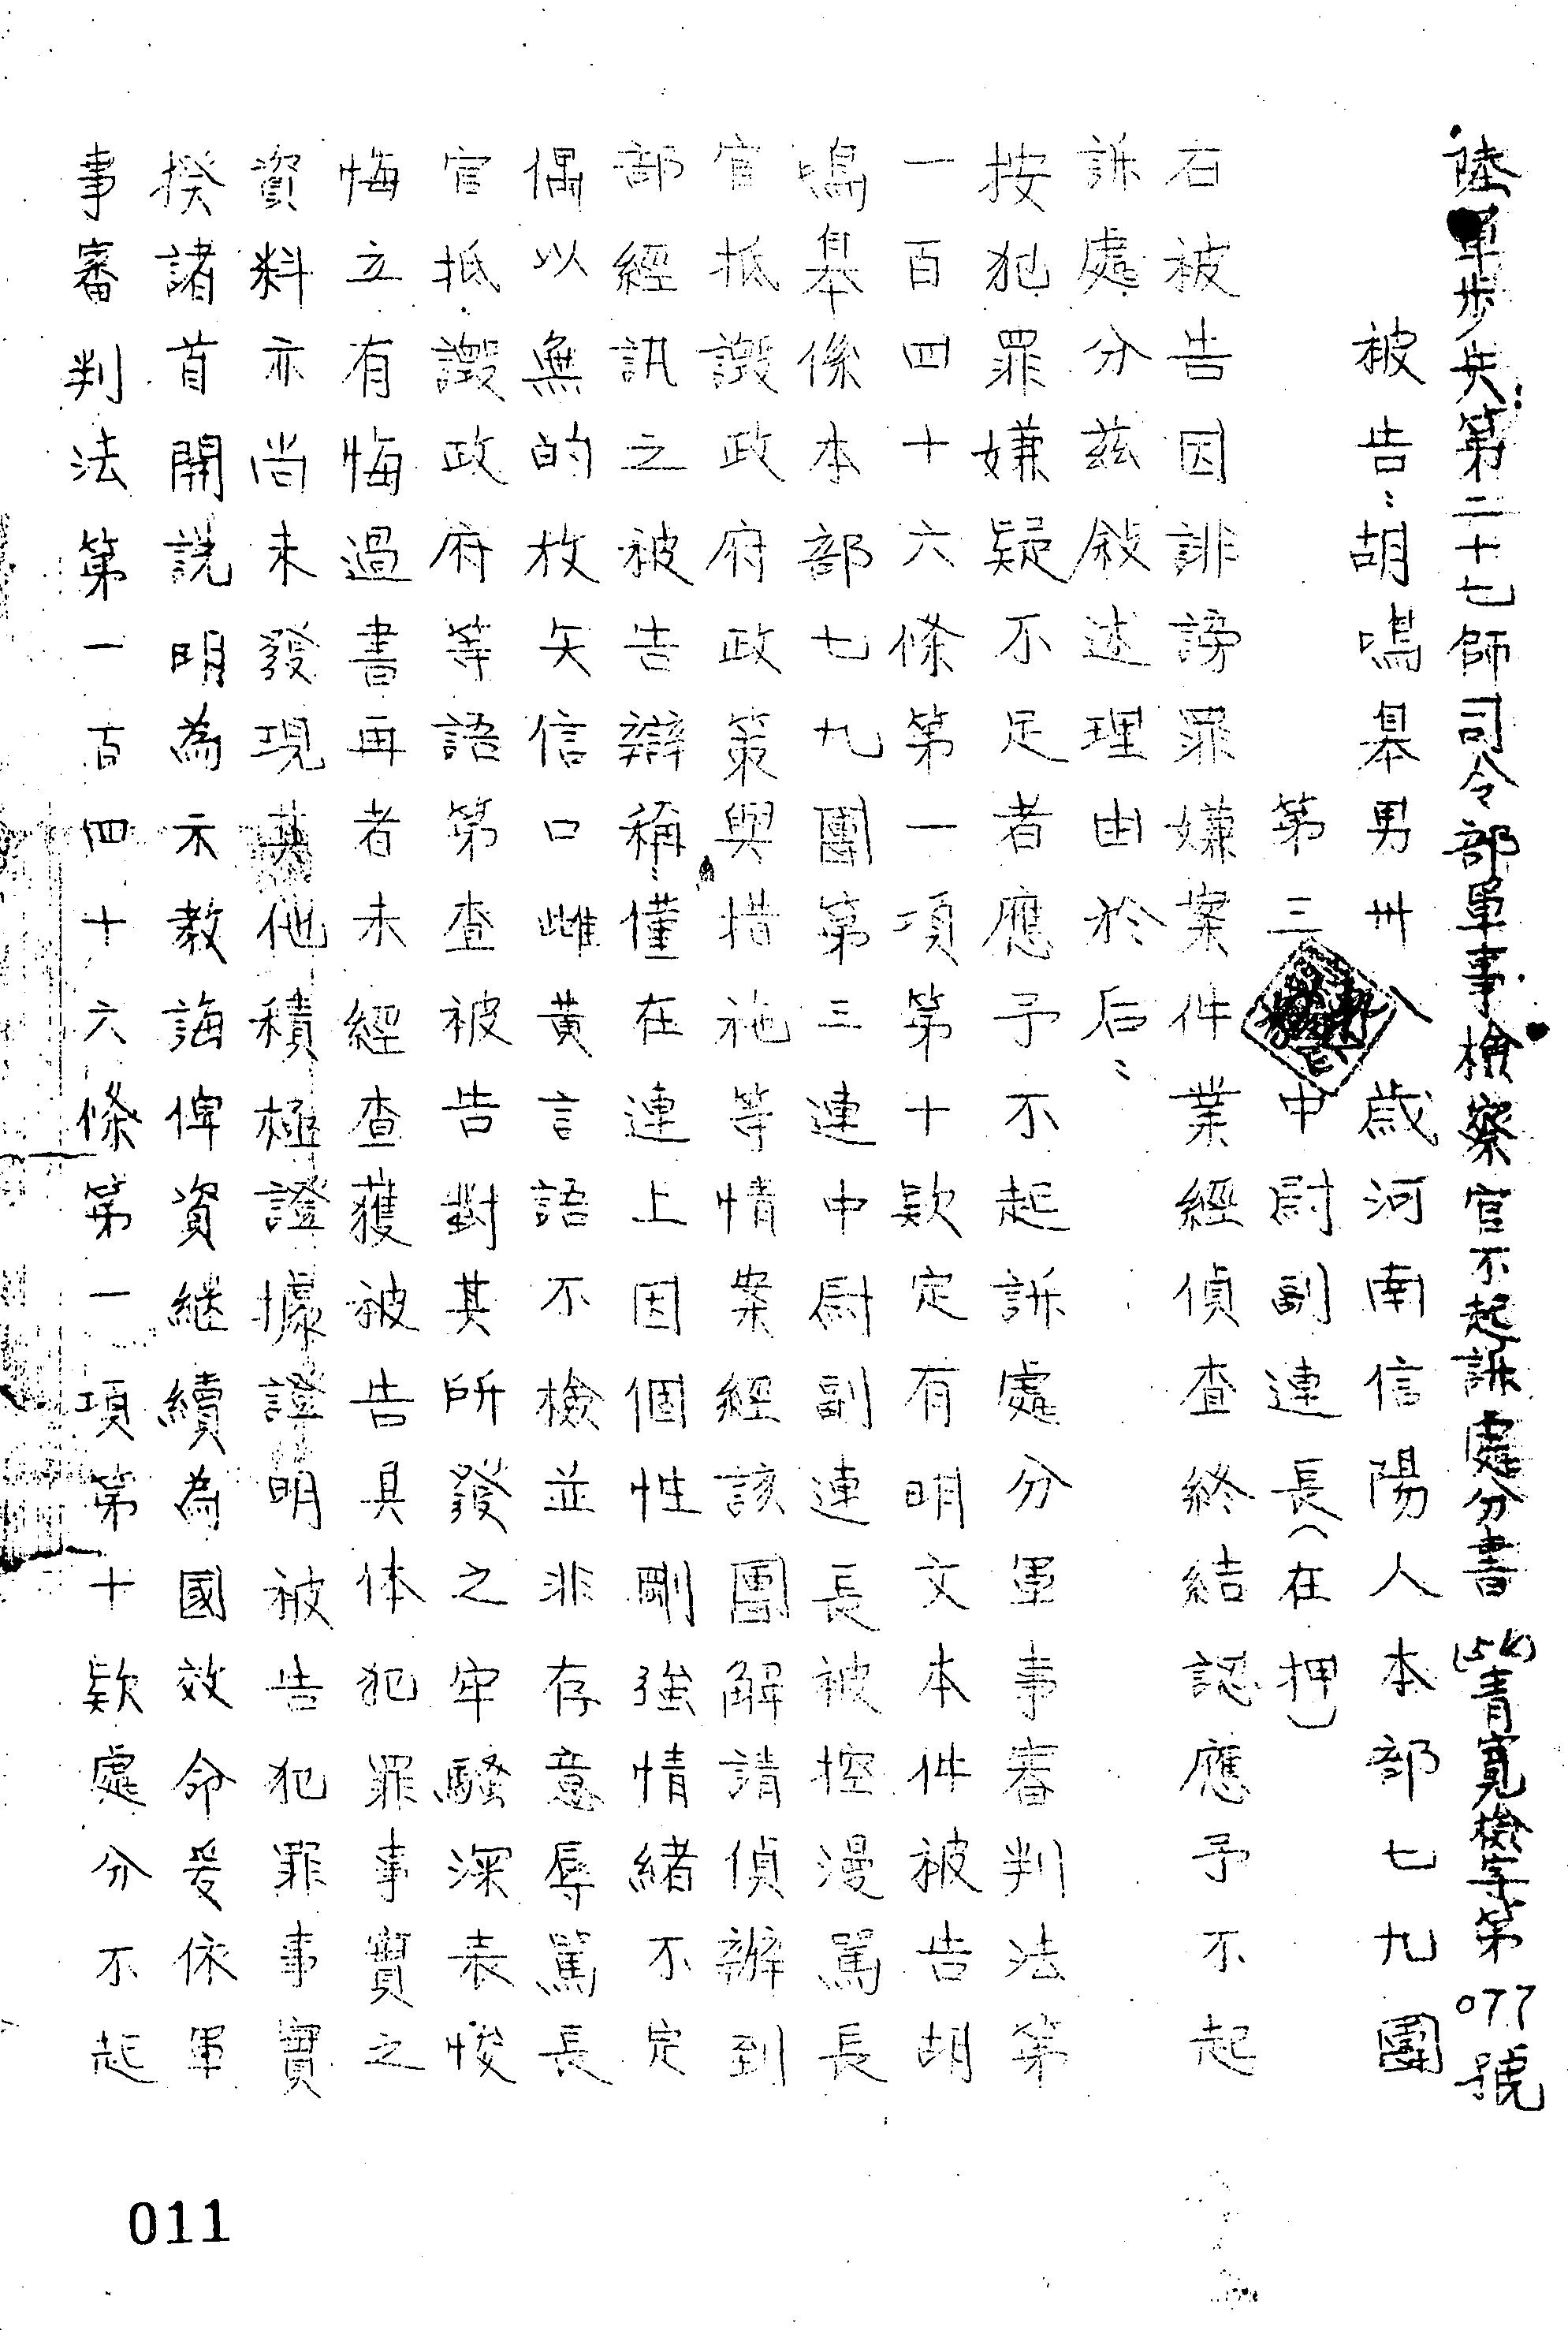 陸軍步兵第二十七師司令部軍事檢察官不起訴處分書(54)青寬檢字第077號
被告:胡鳴皋男卅八歲河南信陽人本部七九團
第三 中尉副連長(在押)
右被告因誹謗罪嫌案件業經偵查終結認應予不起
訴處分茲敘述理由於后:
按犯罪嫌疑不足者應予不起訴處分軍事審判法第
一百四十六條第一項第十款定有明文本件被告胡
鳴皋係本部七九團第三連中尉副連長被控漫罵長
官抵譭政府政策與措施等情案經該團解請偵辦到
部經訊之被告辯稱:僅在連上因個性剛強情緒不定
偶以無的放矢信口雌黃言語不檢並非存意辱罵長
官抵譭政府等語第查被告對其所發之牢騷深表悛
悔立有悔過書再者未經查獲被告具体犯罪事實之
資料亦尚未發現其他積極證據證明被告犯罪事實
揆諸首開說明為示教誨俾資繼續為國效命爰依軍
事審判法第一百四十六條第一項第十款處分不起
011